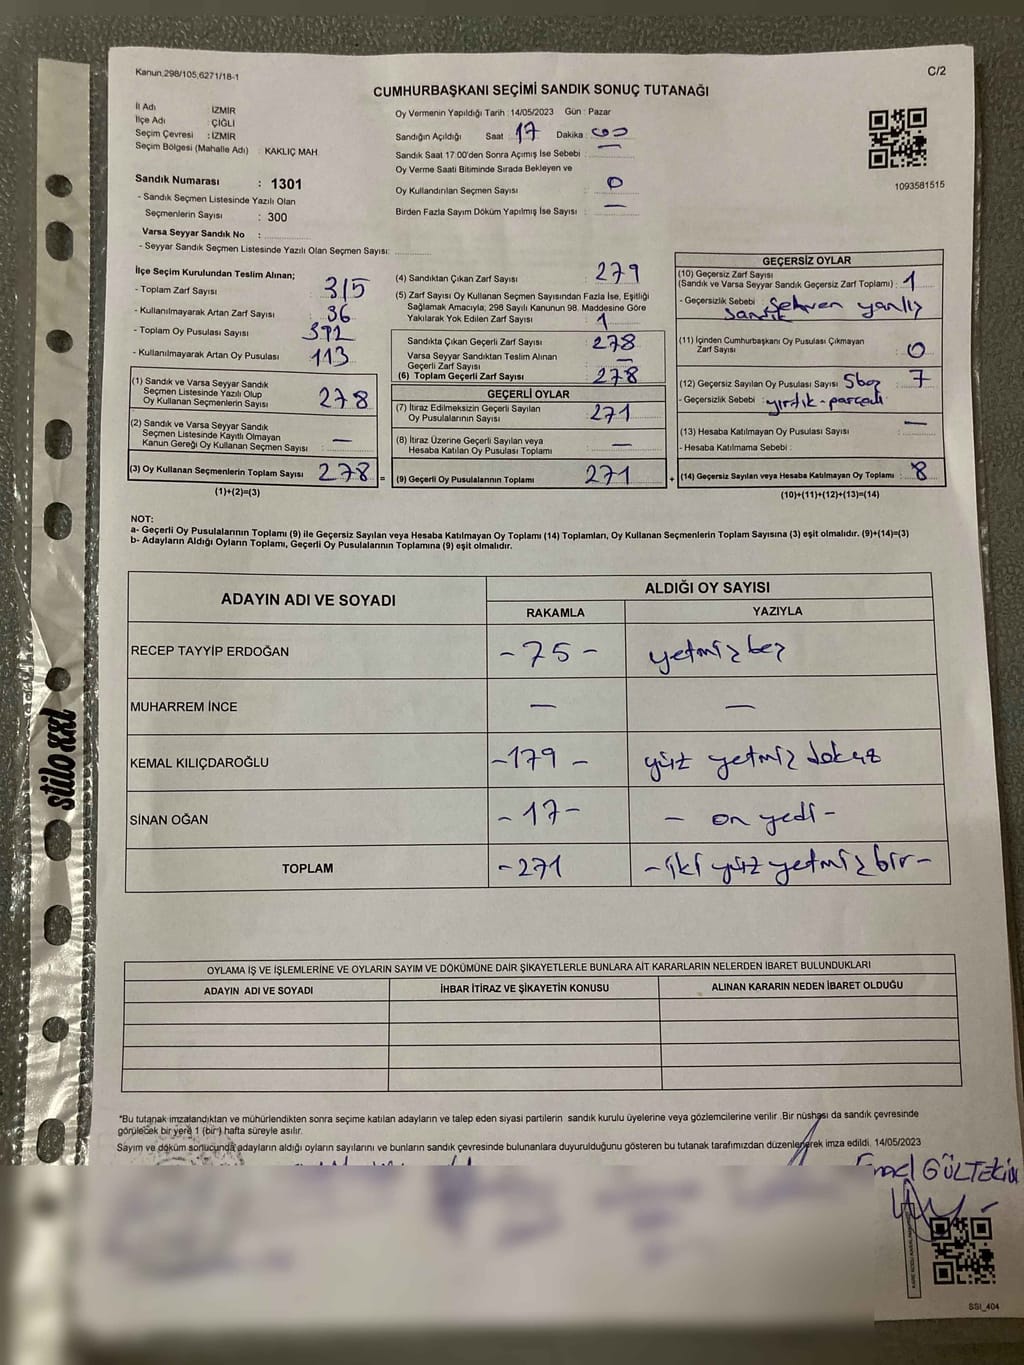 Kanun,298/105,6271/18-1
C/2
CUMHURBAŞKANI SEÇİMİ SANDIK SONUÇ TUTANAĞI
İl Adı İZMİR
İlçe Adı : ÇİĞLİ
Seçim Çevresi : İZMİR
Seçim Bölgesi (Mahalle Adı) : KAKLIÇ MAH.
Sandık Numarası : 1301
- Sandık Seçmen Listesinde Yazılı Olan
Seçmenlerin Sayısı : 300
Varsa Seyyar Sandık No :
- Seyyar Sandık Seçmen Listesinde Yazılı Olan Seçmen Sayısı:
Oy Vermenin Yapıldığı Tarih : 14/05/2023 Gün : Pazar
Sandığın Açıldığı Saat 17 Dakika 00
Sandık Saat 17:00'den Sonra Açımış İse Sebebi : —
Oy Verme Saati Bitiminde Sırada Bekleyen ve
Oy Kullandırılan Seçmen Sayısı : 0
Birden Fazla Sayım Döküm Yapılmış İse Sayısı : —
1093581515
İlçe Seçim Kurulundan Teslim Alınan;
- Toplam Zarf Sayısı : 315
- Kullanılmayarak Artan Zarf Sayısı : 36
- Toplam Oy Pusulası Sayısı : 392
- Kullanılmayarak Artan Oy Pusulası : 113
(1) Sandık ve Varsa Seyyar Sandık
Seçmen Listesinde Yazılı Olup
Oy Kullanan Seçmenlerin Sayısı : 278
(2) Sandık ve Varsa Seyyar Sandık
Seçmen Listesinde Kayıtlı Olmayan
Kanun Gereği Oy Kullanan Seçmen Sayısı : —
(3) Oy Kullanan Seçmenlerin Toplam Sayısı : 278 =
(1)+(2)=(3)
(4) Sandıktan Çıkan Zarf Sayısı : 279
(5) Zarf Sayısı Oy Kullanan Seçmen Sayısından Fazla İse, Eşitliği
Sağlamak Amacıyla; 298 Sayılı Kanunun 98. Maddesine Göre
Yakılarak Yok Edilen Zarf Sayısı : 1
Sandıkta Çıkan Geçerli Zarf Sayısı : 278
Varsa Seyyar Sandıktan Teslim Alınan
Geçerli Zarf Sayısı : —
(6) Toplam Geçerli Zarf Sayısı : 278
GEÇERLİ OYLAR
(7) İtiraz Edilmeksizin Geçerli Sayılan
Oy Pusulalarının Sayısı : 271
(8) İtiraz Üzerine Geçerli Sayılan veya
Hesaba Katılan Oy Pusulası Toplamı : —
(9) Geçerli Oy Pusulalarının Toplamı : 271 +
GEÇERSİZ OYLAR
(10) Geçersiz Zarf Sayısı
(Sandık ve Varsa Seyyar Sandık Geçersiz Zarf Toplamı) : 1
- Geçersizlik Sebebi : Sehven yanlış
sandık
(11) İçinden Cumhurbaşkanı Oy Pusulası Çıkmayan
Zarf Sayısı : 0
(12) Geçersiz Sayılan Oy Pusulası Sayısı : 7
- Geçersizlik Sebebi : yırtık-parçalı
(13) Hesaba Katılmayan Oy Pusulası Sayısı : —
- Hesaba Katılmama Sebebi :
(14) Geçersiz Sayılan veya Hesaba Katılmayan Oy Toplamı : 8
(10)+(11)+(12)+(13)=(14)
NOT:
a- Geçerli Oy Pusulalarının Toplamı (9) ile Geçersiz Sayılan veya Hesaba Katılmayan Oy Toplamı (14) Toplamları, Oy Kullanan Seçmenlerin Toplam Sayısına (3) eşit olmalıdır. (9)+(14)=(3)
b- Adayların Aldığı Oyların Toplamı, Geçerli Oy Pusulalarının Toplamına (9) eşit olmalıdır.
ADAYIN ADI VE SOYADI
ALDIĞI OY SAYISI
RAKAMLA YAZIYLA
RECEP TAYYİP ERDOĞAN -75- yetmiş beş
MUHARREM İNCE — —
KEMAL KILIÇDAROĞLU -179- yüz yetmiş dokuz
SİNAN OĞAN -17- - on yedi -
TOPLAM -271 - iki yüz yetmiş bir -
OYLAMA İŞ VE İŞLEMLERİNE VE OYLARIN SAYIM VE DÖKÜMÜNE DAİR ŞİKAYETLERLE BUNLARA AİT KARARLARIN NELERDEN İBARET BULUNDUKLARI
ADAYIN ADI VE SOYADI İHBAR İTİRAZ VE ŞİKAYETİN KONUSU ALINAN KARARIN NEDEN İBARET OLDUĞU
*Bu tutanak imzalandıktan ve mühürlendikten sonra seçime katılan adayların ve talep eden siyasi partilerin sandık kurulu üyelerine veya gözlemcilerine verilir .Bir nüshası da sandık çevresinde
görülecek bir yere 1 (bir) hafta süreyle asılır.
Sayım ve döküm sonucunda adayların aldığı oyların sayılarını ve bunların sandık çevresinde bulunanlara duyurulduğunu gösteren bu tutanak tarafımızdan düzenlenerek imza edildi. 14/05/2023
GÜLTEKİN
SSI_404
stilo xxl